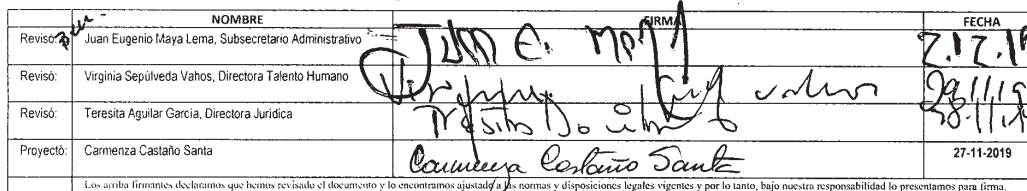 NOMBRE FIRMA FECHA
Revisó: Juan Eugenio Maya Lema, Subsecretario Administrativo Juan E. Maya 2.12.19
Revisó: Virginia Sepúlveda Vahos, Directora Talento Humano Virginia Vahos 29/11/19
Revisó: Teresita Aguilar García, Directora Jurídica Teresita
Proyectó: Carmenza Castaño Santa Carmenza Castaño Santa 27-11-2019
Los arriba firmantes declaramos que hemos revisado el documento y lo encontramos ajustado a las normas y disposiciones legales vigentes y por lo tanto, bajo nuestra responsabilidad lo presentamos para firma.